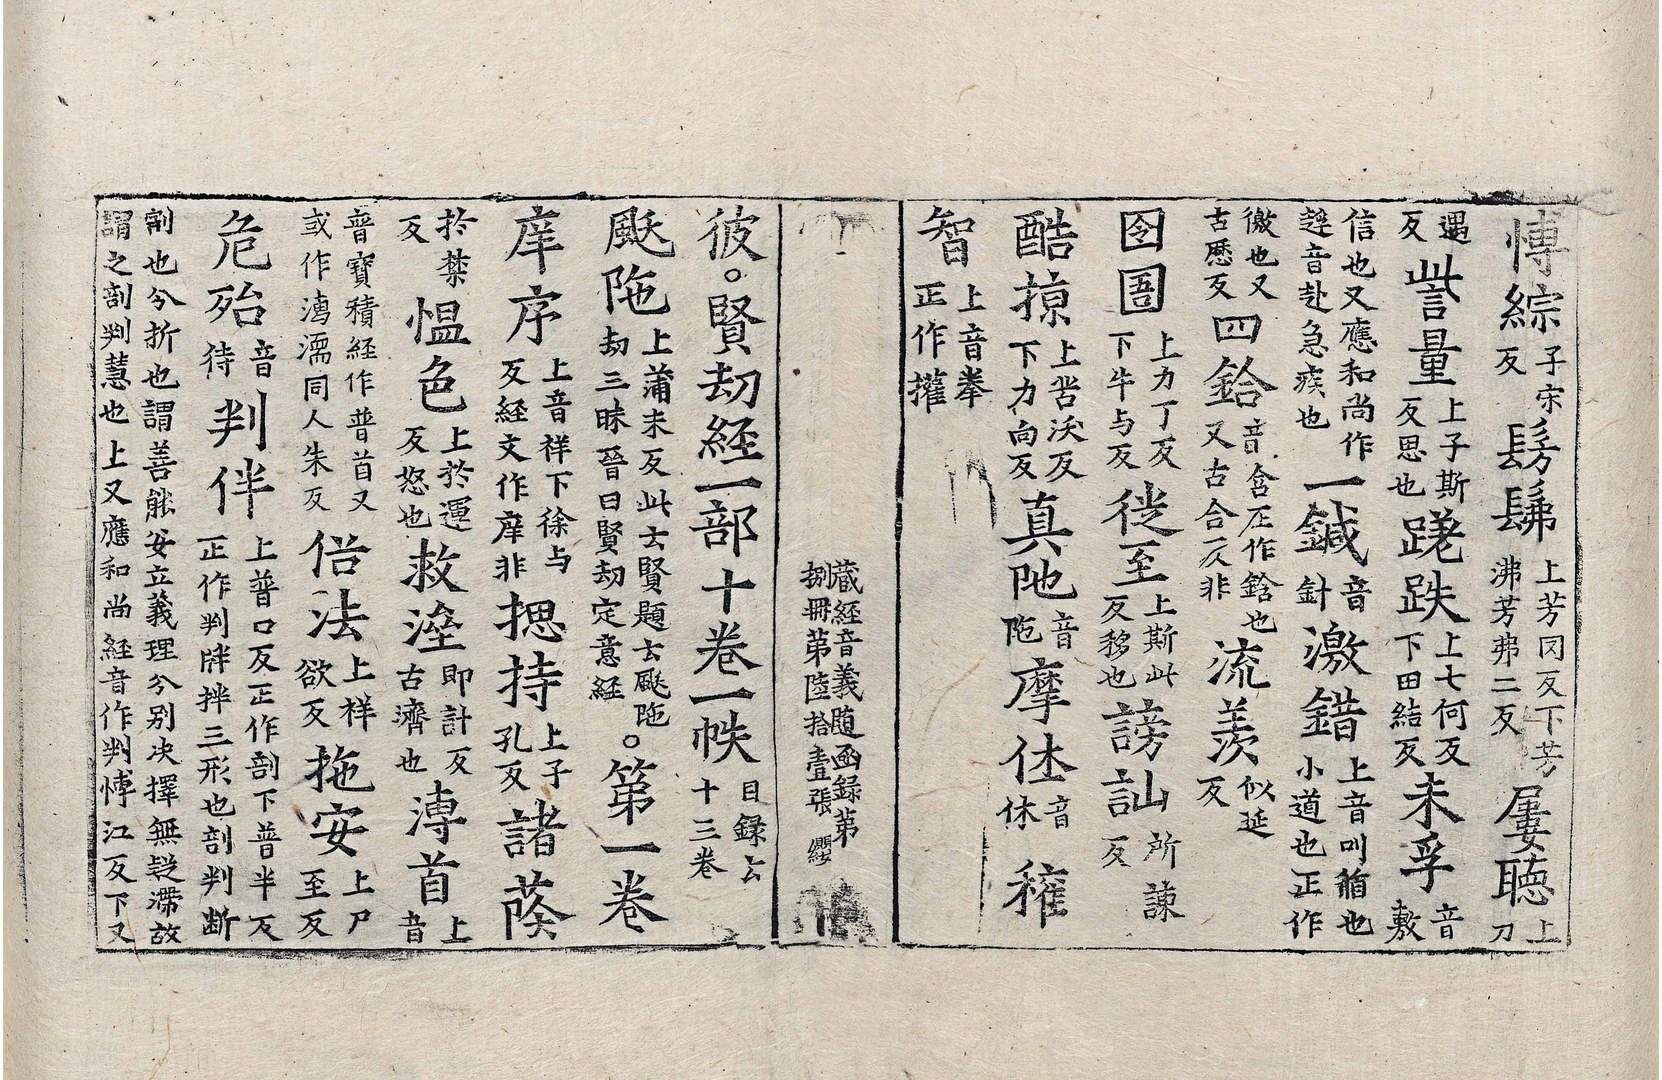 愽綜子宋反髣髴上芳罔反下芳沸芳弗二反屢聽上刀
遇反訾量上子斯反思也蹉跌上七何反下田結反未孚音敷
信也又應和尚作趕音赴急疾也一鍼音針激錯上音叫循也小道也正作
徼也又古歷反四鋡音含正作鋡也又古合反非流羡似延反
囹圄上力丁反下牛与反徙至上斯此反移也謗訕所諫反
酷掠上苦沃反下力向反真陁音陁摩休音休㩲
智上音拳正作㩲
藏經音義隨函録第捌冊第陸拾壹張 纓
彼。賢劫經一部十卷一帙目録云十三卷
颰陁上蒲末反此云賢題云颰陁劫三昧晉曰賢劫定意經。第一卷
庠序上音祥下徐与反経文作庠非揌持上子孔反諸蔭
扵禁反愠色上扵運反怒也救濟即計反古濟也溥首上音
普寶積經作普首又或作濡濡同人朱反俗法上祥欲反拖安上尸至反
危殆音待判伴上普口反正作剖下普半反正作判牉拌三形也剖判断
割也兮折也謂善能安立義理兮别决擇無疑滯故
謂之剖判慧也上又應和尚経音作判愽江反下又